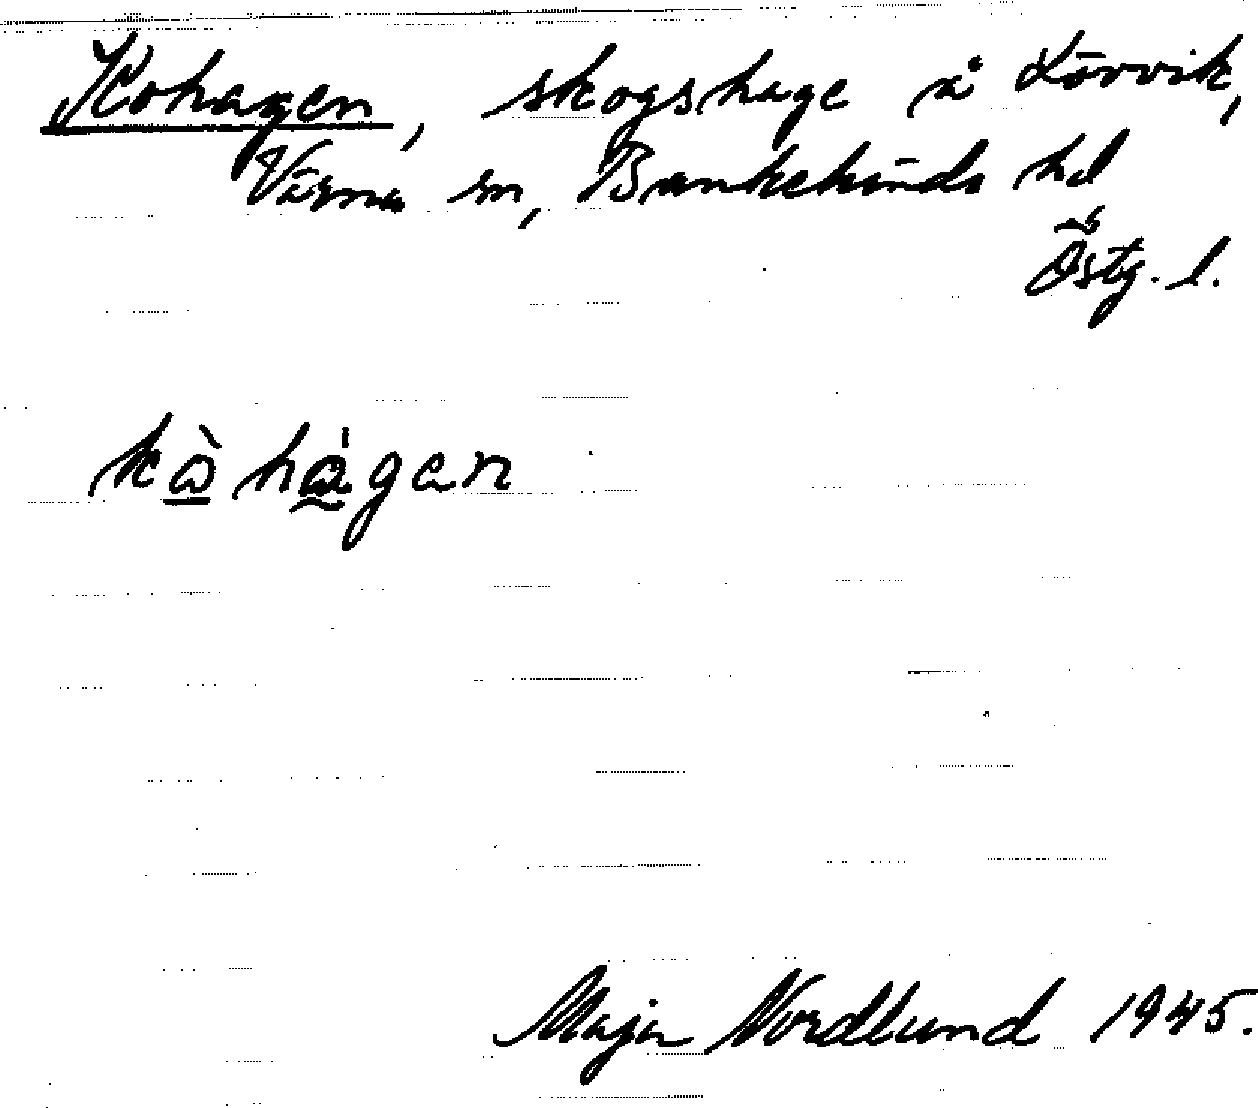 Kohagen, skogshage å Lövvik,
Värna sn, Bankekinds hd
Östg. l.
kòhàgen
Maja Nordlund 1945.